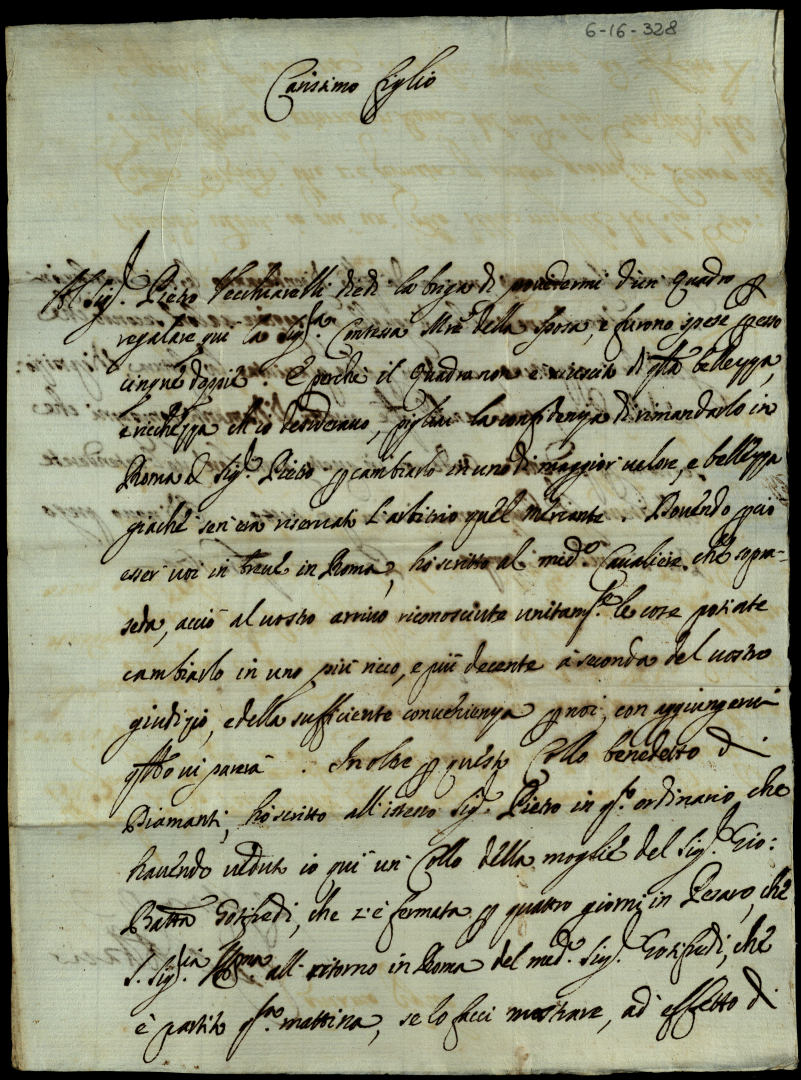 6-16-328
Carissimo Figlio
Al Sig.r Pietro Vecchiarelli diedi la briga di provedermi d'un Quadro p
regalare qui la Sig.ra Contessa M.re della sposa, e furono spese p esso
cinque doppie. E perche il Quadro non è riuscito di q.lla bellezza,
e ricchezza ch'io desideravo, pigliai la confidenza di rimandarlo in
Roma al Sig.r Pietro p cambiarlo in uno di maggior valore, e bellezza
giache sen'era riservato l'arbitrio q.l mercante. Dovendo p ciò
esser voi in breve in Roma, hò scritto al med.o Cavaliere, che sopra-
seda, acciò al vostro arrivo riconosciute unitam.te le cose potiate
cambiarlo in uno più ricco, e più decente à seconda del vostro
giudizio, e della sufficiente convenienza p noi, con aggiungervi
q.to vi parerà. Inoltre p questo Collo benedetto di
Diamanti, hò scritto all'istesso Sig.r Pietro in q.sto ordinario, che
havendo veduto io quì un Collo della moglie del Sig.r Gio:
Batta Gottifredi, che s'è fermata p quattro giorni in Pesaro, che
S. Sig.ria Ill.ma all ritorno in Roma del med.o Sig.r Gottifredi, che
è partito q.sta mattina, se lo facci mostrare, ad effetto di